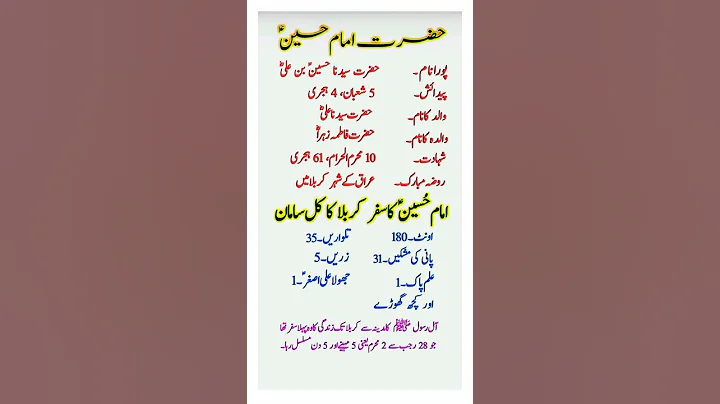 حضرت امام حسینؑ
پورا نام۔ حضرت سیدنا حسینؑ بن علیؓ
پیدائش۔ 5 شعبان، 4 ہجری
والد کا نام۔ حضرت سیدنا علیؓ
والدہ کا نام۔ حضرت فاطمہ زہراؓ
شہادت۔ 10 محرم الحرام، 61 ہجری
روضہ مبارک۔ عراق کے شہر کربلا میں
امام حُسینؑ کا سفر کربلا کا کل سامان
اونٹ۔180 تلواریں۔35
پانی کی مشکیں۔31 زریں۔5
علم پاک۔1 جھولا علی اصغرؑ۔1
اور کچھ گھوڑے
آل رسول ﷺ کا مدینہ سے کربلا تک زندگی کا وہ پہلا سفر تھا
جو 28 رجب سے 2 محرم یعنی 5 مہینے اور 5 دن مسلسل رہا۔